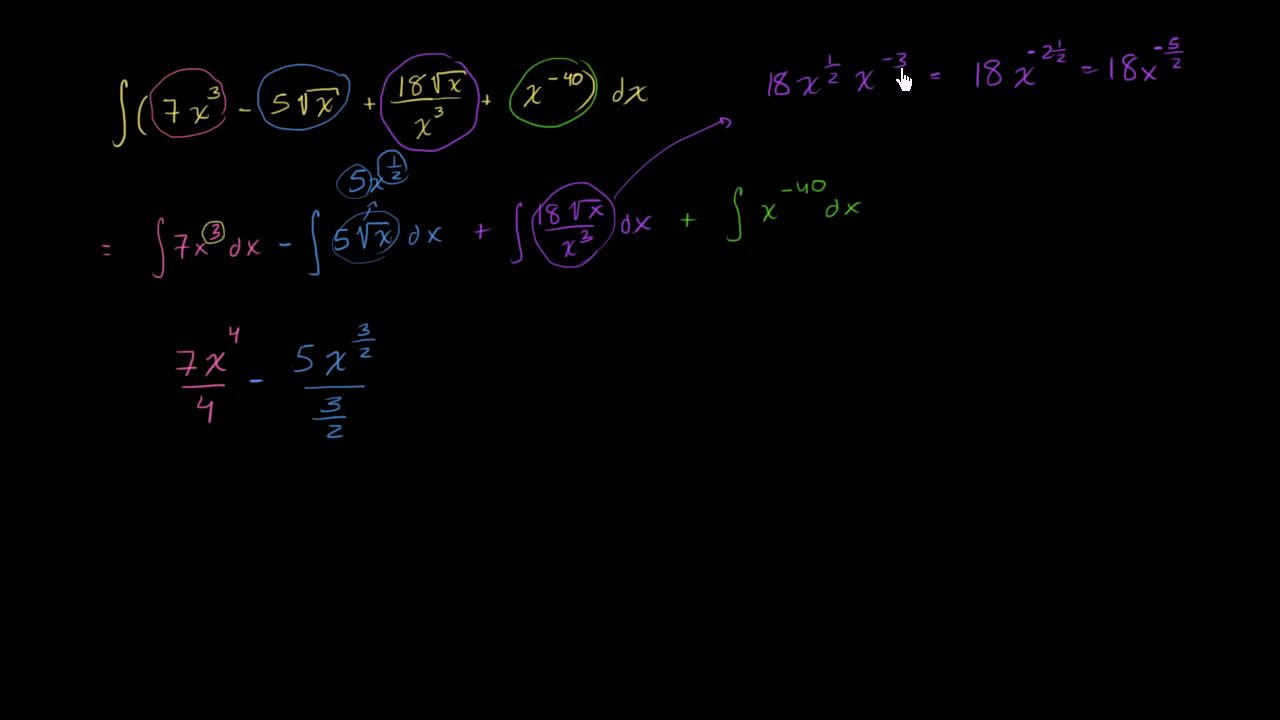 ∫(7x³ - 5√x + 18√x/x³ + x⁻⁴⁰) dx
18 x^(1/2) x^(-3) = 18 x^(-2 1/2) = 18x^(-5/2)
5x^(1/2)
= ∫7x³dx - ∫5√x dx + ∫18√x/x³ dx + ∫x⁻⁴⁰dx
7x⁴/4 - 5x^(3/2)/(3/2)